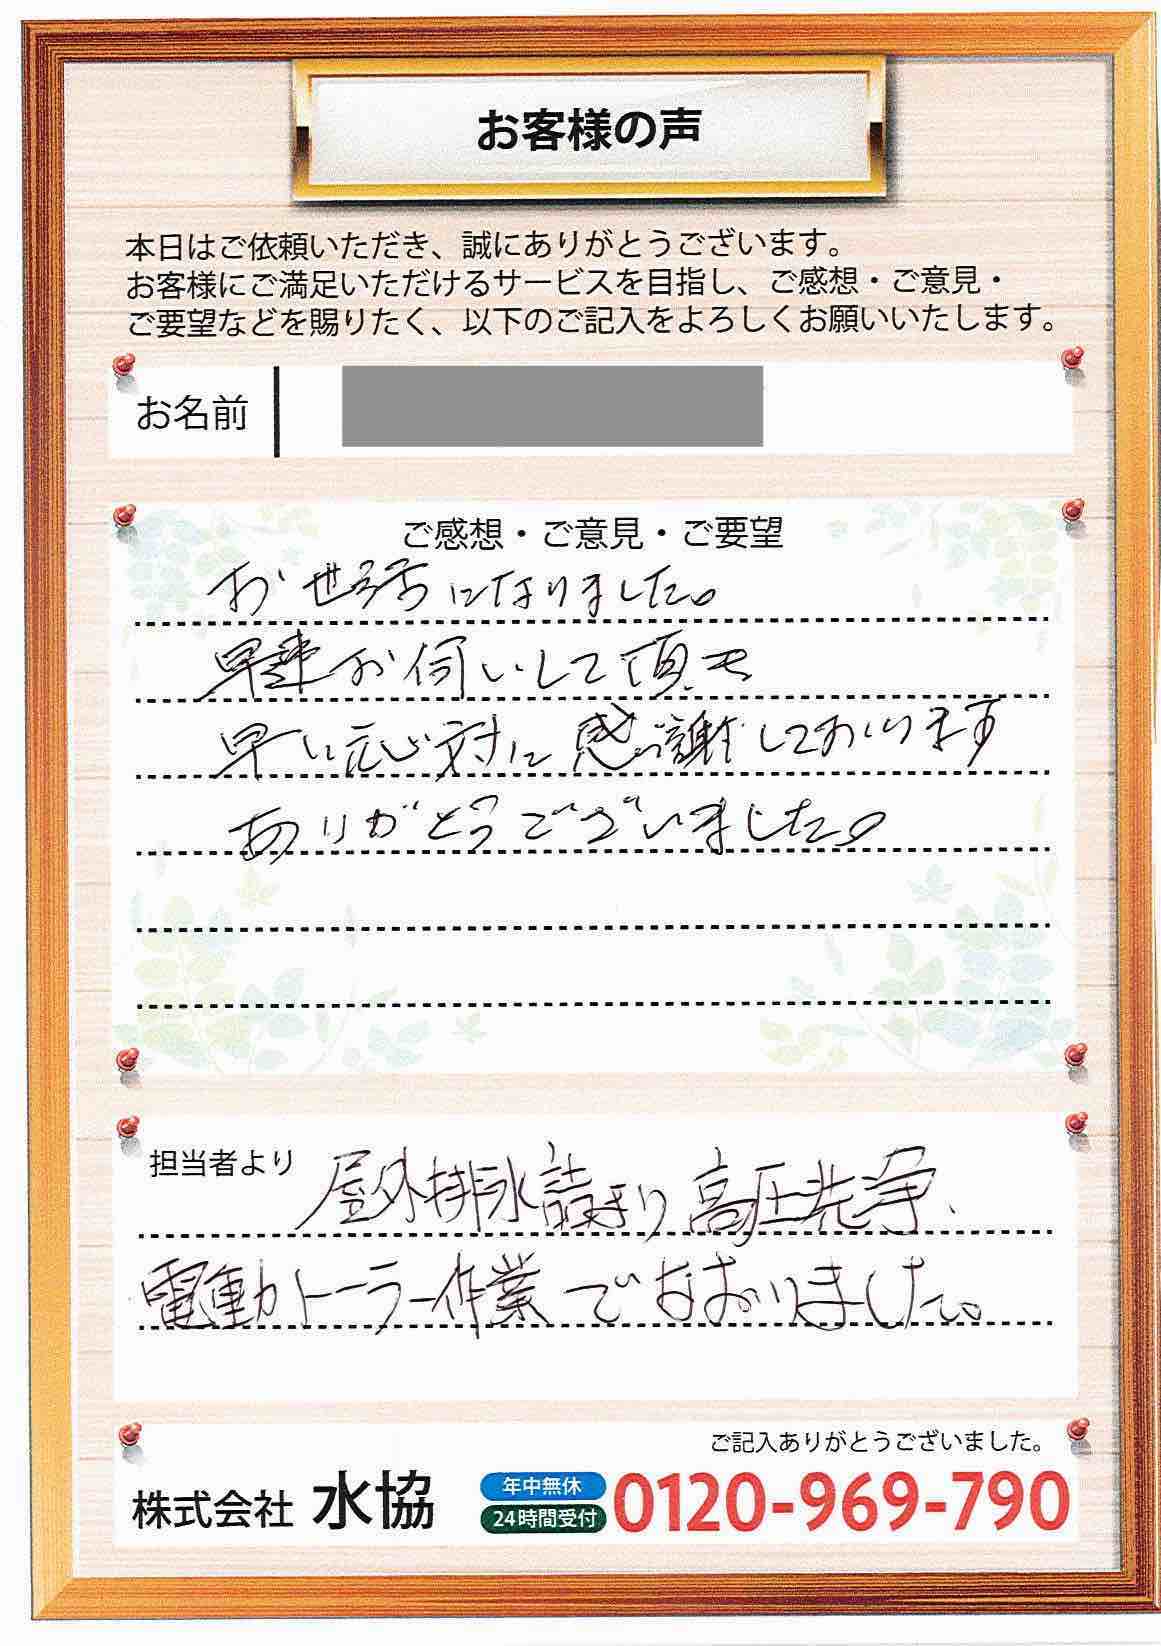 お客様の声
本日はご依頼いただき、誠にありがとうございます。
お客様にご満足いただけるサービスを目指し、ご感想・ご意見・
ご要望などを賜りたく、以下のご記入をよろしくお願いいたします。
お名前
ご感想・ご意見・ご要望
お世話になりました。
早速お伺いして頂き
早い応対に感謝しております
ありがとうございました。
担当者より 屋外排水詰まり高圧洗浄、
電動トーラー作業でなおりました。
ご記入ありがとうございました。
株式会社 水協 年中無休 24時間受付 0120-969-790